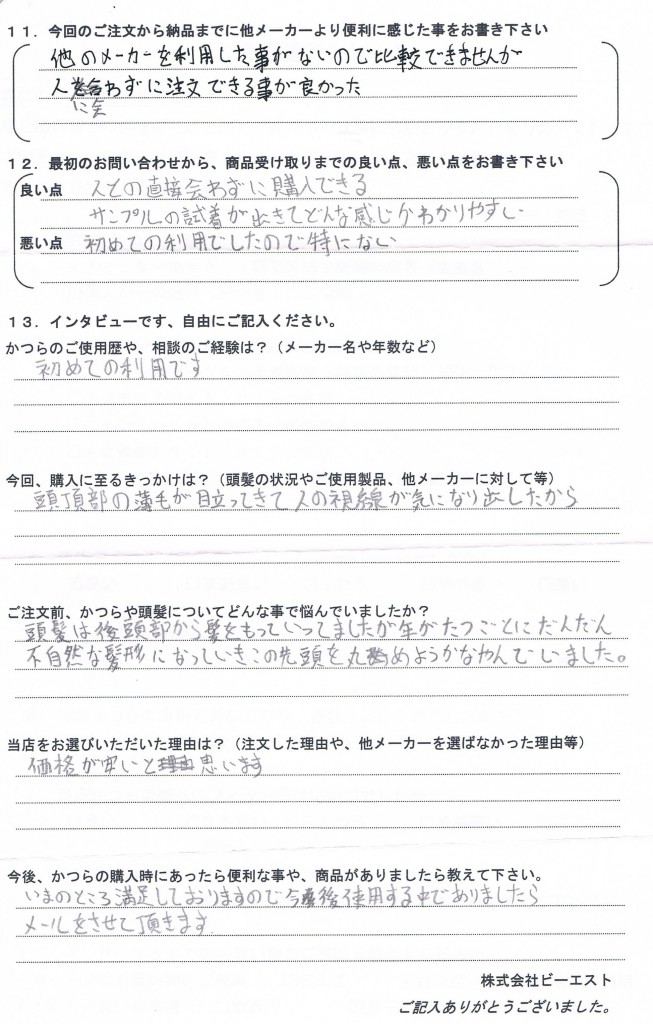 １１．今回のご注文から納品までに他メーカーより便利に感じた事をお書き下さい
他のメーカーを利用した事がないので比較できませんが
人に会わずに注文できる事が良かった
１２．最初のお問い合わせから、商品受け取りまでの良い点、悪い点をお書き下さい
良い点 人との直接会わずに購入できる
サンプルの試着が出きてどんな感じかわかりやすい
悪い点 初めての利用でしたので特にない
１３．インタビューです、自由にご記入ください。
かつらのご使用歴や、相談のご経験は？（メーカー名や年数など）
初めての利用です
今回、購入に至るきっかけは？（頭髪の状況やご使用製品、他メーカーに対して等）
頭頂部の薄毛が目立ってきて人の視線が気になり出したから
ご注文前、かつらや頭髪についてどんな事で悩んでいましたか？
頭髪は後頭部から髪をもっていってましたが年がたつごとにだんだん
不自然な髪形になっていきこの先頭を丸めようかなやんでいました。
当店をお選びいただいた理由は？（注文した理由や、他メーカーを選ばなかった理由等）
価格が安いと思います
今後、かつらの購入時にあったら便利な事や、商品がありましたら教えて下さい。
いまのところ満足しておりますので今後使用する中でありましたら
メールをさせて頂きます
株式会社ビーエスト
ご記入ありがとうございました。